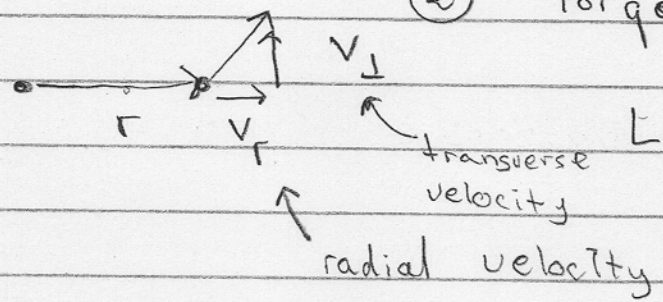 ②
V⊥
r
Vr
L
transverse
velocity
radial velocity